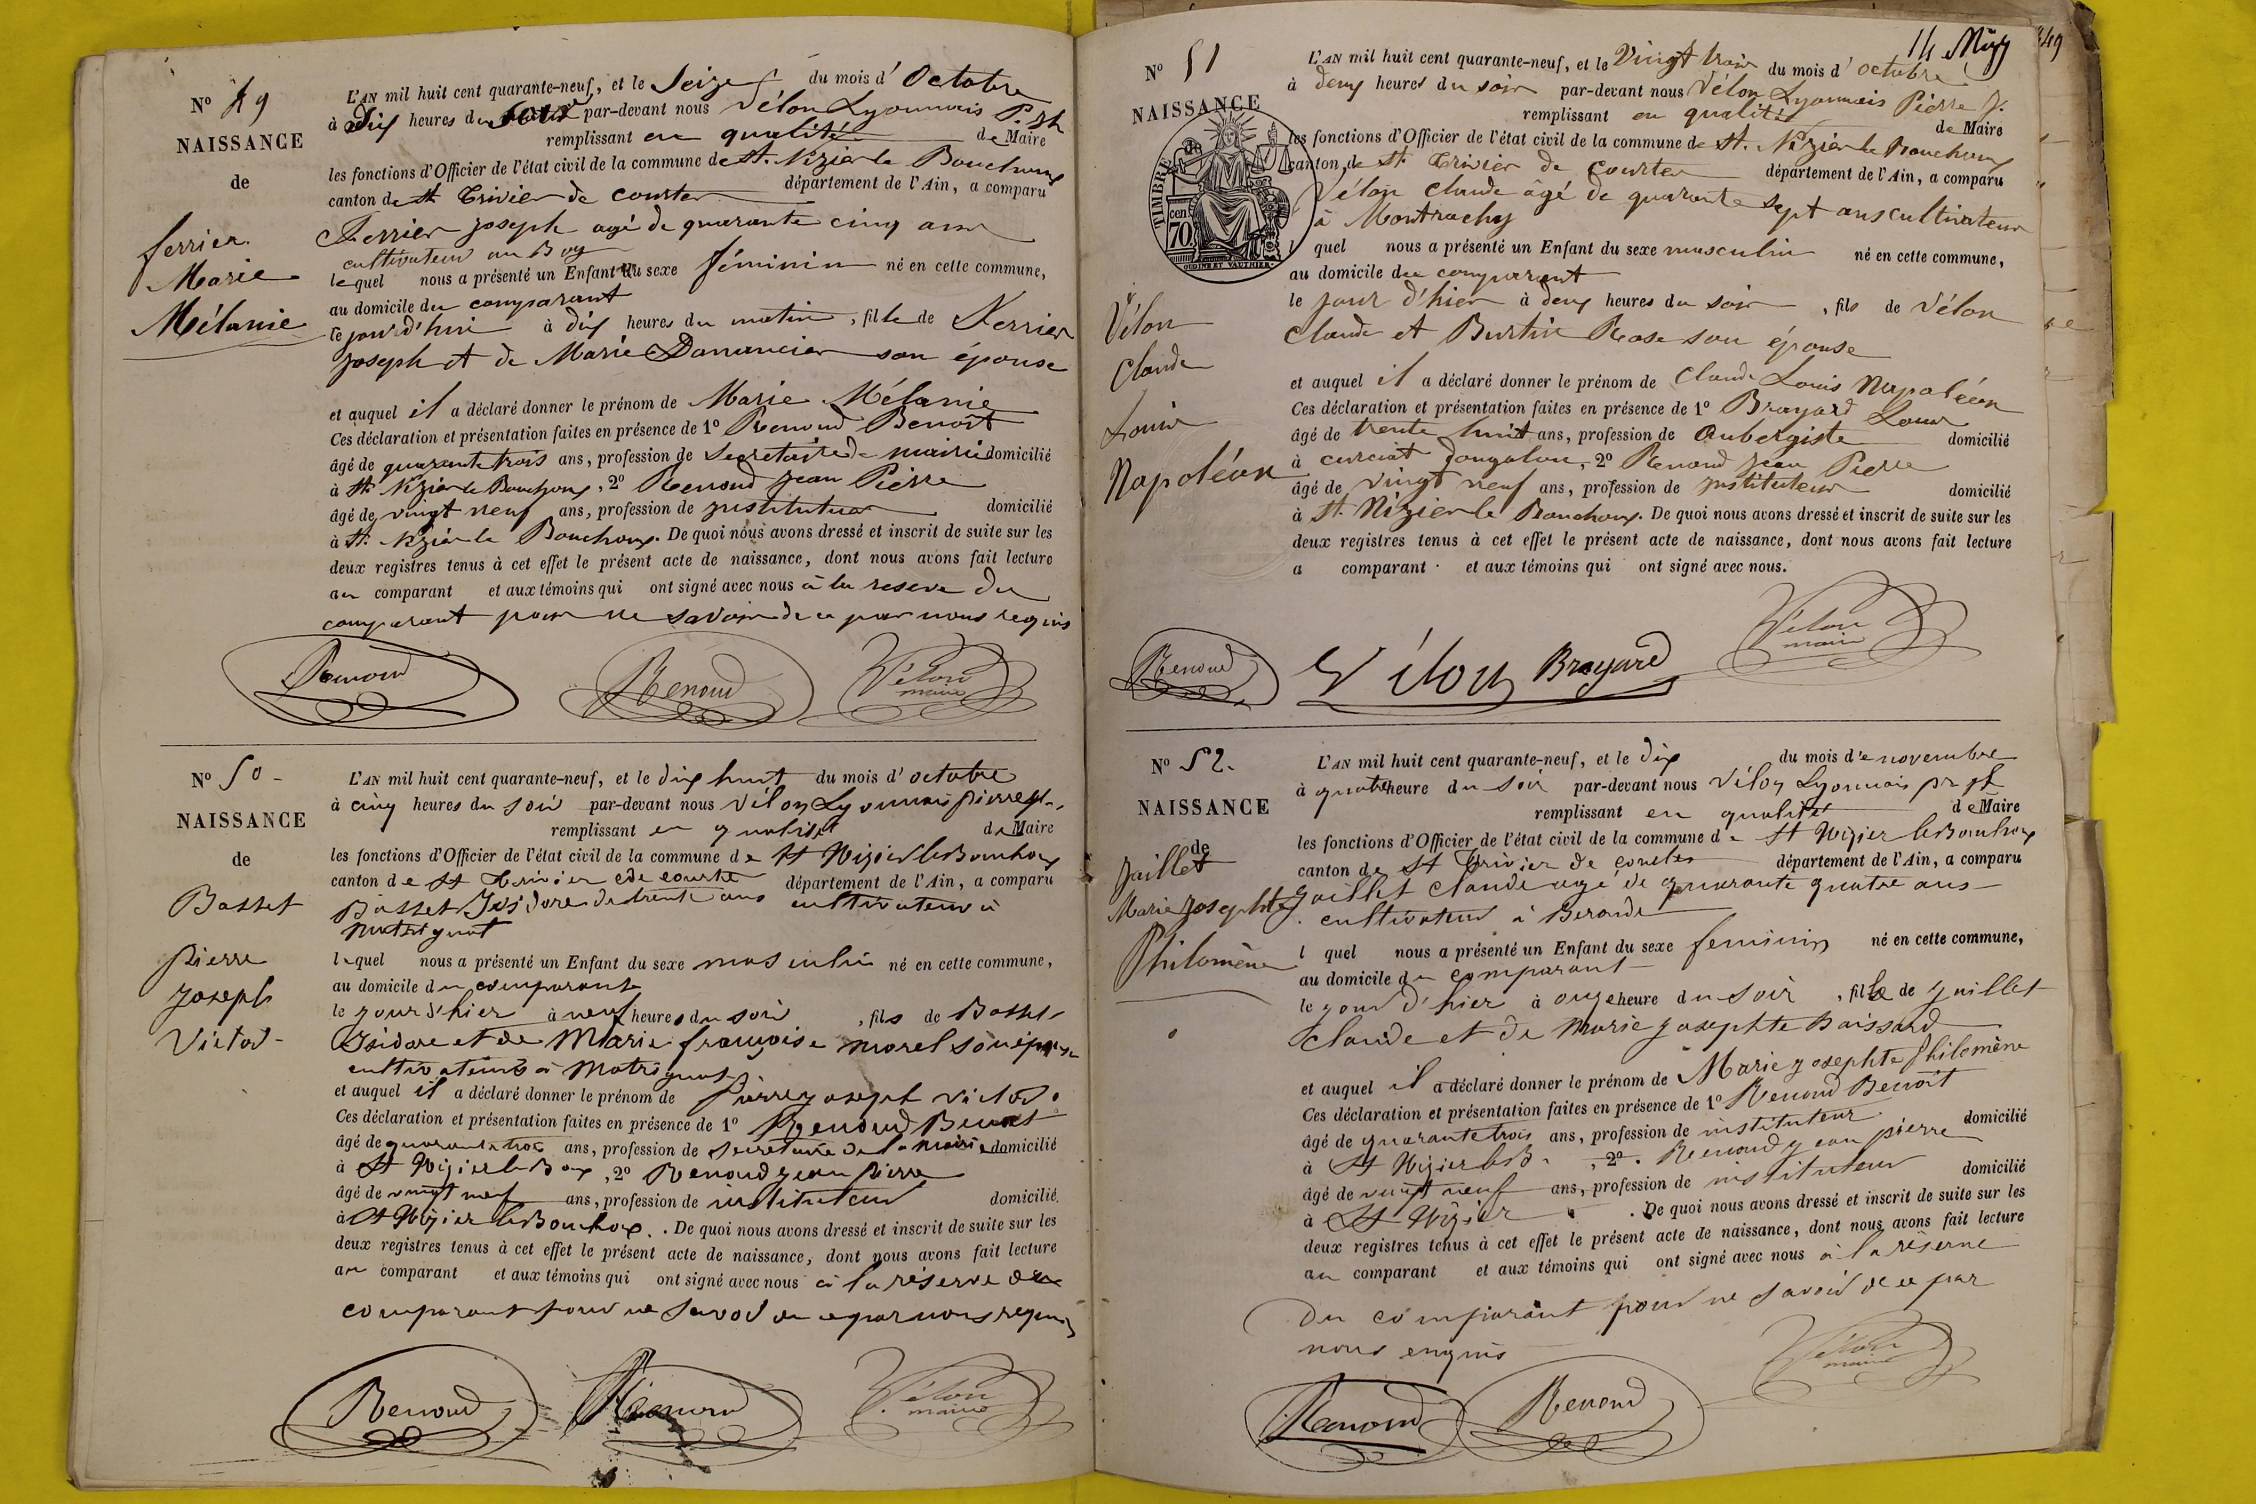 N° 49
NAISSANCE
de
ferrier
Marie
Mélanie
L'AN mil huit cent quarante-neuf, et le Seize du mois d'Octobre
à Dix heures du par-devant nous Vélon Lyonnais P. Jh
remplissant en qualité de Maire
les fonctions d'Officier de l'état civil de la commune de St. Nizier le Bouchoux
canton de St Trivier de courtes département de l'Ain, a comparu
Ferrier joseph agé de quarante cinq ans
cultivateur au Bay
lequel nous a présenté un Enfant du sexe féminin né en cette commune,
au domicile du comparant
le jourd'hui à dix heures du matin, fille de Ferrier
joseph et de Marie Danancier son épouse
et auquel il a déclaré donner le prénom de Marie Mélanie
Ces déclaration et présentation faites en présence de 1° Renoud Benoît
âgé de quarante trois ans, profession de Secretaire de mairie domicilié
à St. Nizier le Bouchoux, 2° Renoud jean Pierre
âgé de vingt neuf ans, profession de instituteur domicilié
à St. Nizier le Bouchoux. De quoi nous avons dressé et inscrit de suite sur les
deux registres tenus à cet effet le présent acte de naissance, dont nous avons fait lecture
au comparant et aux témoins qui ont signé avec nous à la reserve du
comparant pour ne savoir de ce par nous requis
Renoud Renoud Vélon
maire
N° 50 -
NAISSANCE
de
Basset
pierre
joseph
Victor -
L'AN mil huit cent quarante-neuf, et le dix huit du mois d'octobre
à cinq heures du soir par-devant nous Vélon Lyonnais pierre jh.
remplissant en qualité de Maire
les fonctions d'Officier de l'état civil de la commune de St Nizier le Bouchoux
canton de St trivier de courtes département de l'Ain, a comparu
Basset Isidore de trente ans cultivateur à
lequel nous a présenté un Enfant du sexe masculin né en cette commune,
au domicile du comparant
le jour d'hier à neuf heures du soir, fils de Basset
Isidore et de Marie françoise morel son épouse
cultivateurs à
et auquel il a déclaré donner le prénom de pierre joseph victor.
Ces déclaration et présentation faites en présence de 1° Renoud Benoit
âgé de quarante trois ans, profession de secretaire de la mairie domicilié
à St Nizier le Boux, 2° Renoud jean pierre
âgé de vingt neuf ans, profession de instituteur domicilié
à St Nizier le Bouchoux. De quoi nous avons dressé et inscrit de suite sur les
deux registres tenus à cet effet le présent acte de naissance, dont nous avons fait lecture
au comparant et aux témoins qui ont signé avec nous à la réserve du
comparant pour ne savoir de ce par nous requis
Renoud Renoud Vélon
maire
N° 51
NAISSANCE
TIMBRE
cen
70
OUDINÉ ET VAUTHIER
Vélon
Claude
Louis
Napoléon
L'AN mil huit cent quarante-neuf, et le Vingt trois du mois d'octobre
à deux heures du soir par-devant nous Vélon Lyonnais Pierre J.
remplissant en qualité de Maire
les fonctions d'Officier de l'état civil de la commune de St. Nizier le Bouchoux
canton de St. Trivier de courtes département de l'Ain, a comparu
Vélon claude âgé de quarante sept ans cultivateur
à Montrachy
l quel nous a présenté un Enfant du sexe masculin né en cette commune,
au domicile du comparant
le jour d'hier à deux heures du soir, fils de Vélon
Claude et Burtin Rose son épouse
et auquel il a déclaré donner le prénom de Claude Louis Napoléon
Ces déclaration et présentation faites en présence de 1° Brayard Louis
âgé de trente huit ans, profession de Aubergiste domicilié
à curciat dongalon, 2° Renoud jean Pierre
âgé de vingt neuf ans, profession de instituteur domicilié
à St. Nizier le Bouchoux. De quoi nous avons dressé et inscrit de suite sur les
deux registres tenus à cet effet le présent acte de naissance, dont nous avons fait lecture
a comparant et aux témoins qui ont signé avec nous.
Renoud Vélon Brayard Vélon
maire
N° 52.
NAISSANCE
de
jaillet
Marie josephte
Philomène
L'AN mil huit cent quarante-neuf, et le dix du mois de novembre
à quatre heure du soir par-devant nous Vélon Lyonnais pr jh
remplissant en qualité de Maire
les fonctions d'Officier de l'état civil de la commune de St Nizier le Bouchoux
canton de St Trivier de courtes département de l'Ain, a comparu
jaillet claude agé de quarante quatre ans -
cultivateur à
l quel nous a présenté un Enfant du sexe feminin né en cette commune,
au domicile du comparant
le jour d'hier à onze heure du soir, fille de jaillet
claude et de marie josephte Boissard
et auquel il a déclaré donner le prénom de Marie josephte philomène
Ces déclaration et présentation faites en présence de 1° Renoud Benoit
âgé de quarante trois ans, profession de instituteur domicilié
à St Nizier le B., 2° Renoud jean pierre
âgé de vingt neuf ans, profession de instituteur domicilié
à St Nizier. De quoi nous avons dressé et inscrit de suite sur les
deux registres tenus à cet effet le présent acte de naissance, dont nous avons fait lecture
au comparant et aux témoins qui ont signé avec nous à la réserve
du comparant pour ne savoir de ce par
nous enquis
Renoud Renoud Vélon
maire